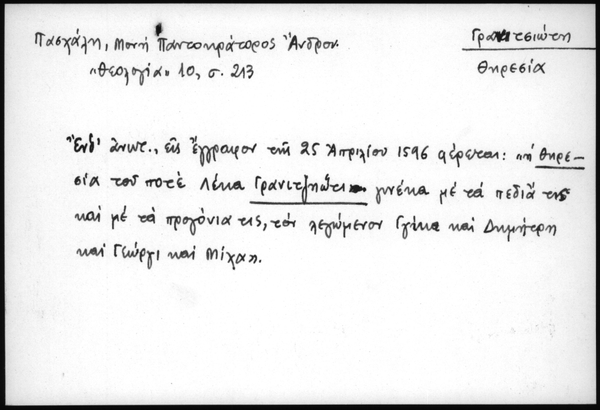 Πασχάλη, Μονή Παντοκράτορος Ἄνδρου
«Θεολογία» 10, σ. 213
Γρανιτσιώτη
Θηρεσία
Ἔνθ' ἀνωτ., εἰς ἔγγραφον τῆς 25 Ἀπριλίου 1596 φέρεται: «ἡ Θηρε-
σία τοῦ ποτὲ Λέκα Γρανιτζηώτι γυνέκα μὲ τὰ πεδιᾶ της
καὶ μὲ τὰ προγόνια τις, τὸν λεγώμενον Γγίκα καὶ Δημήτρη
καὶ Γεώργι καὶ Μίχαη.